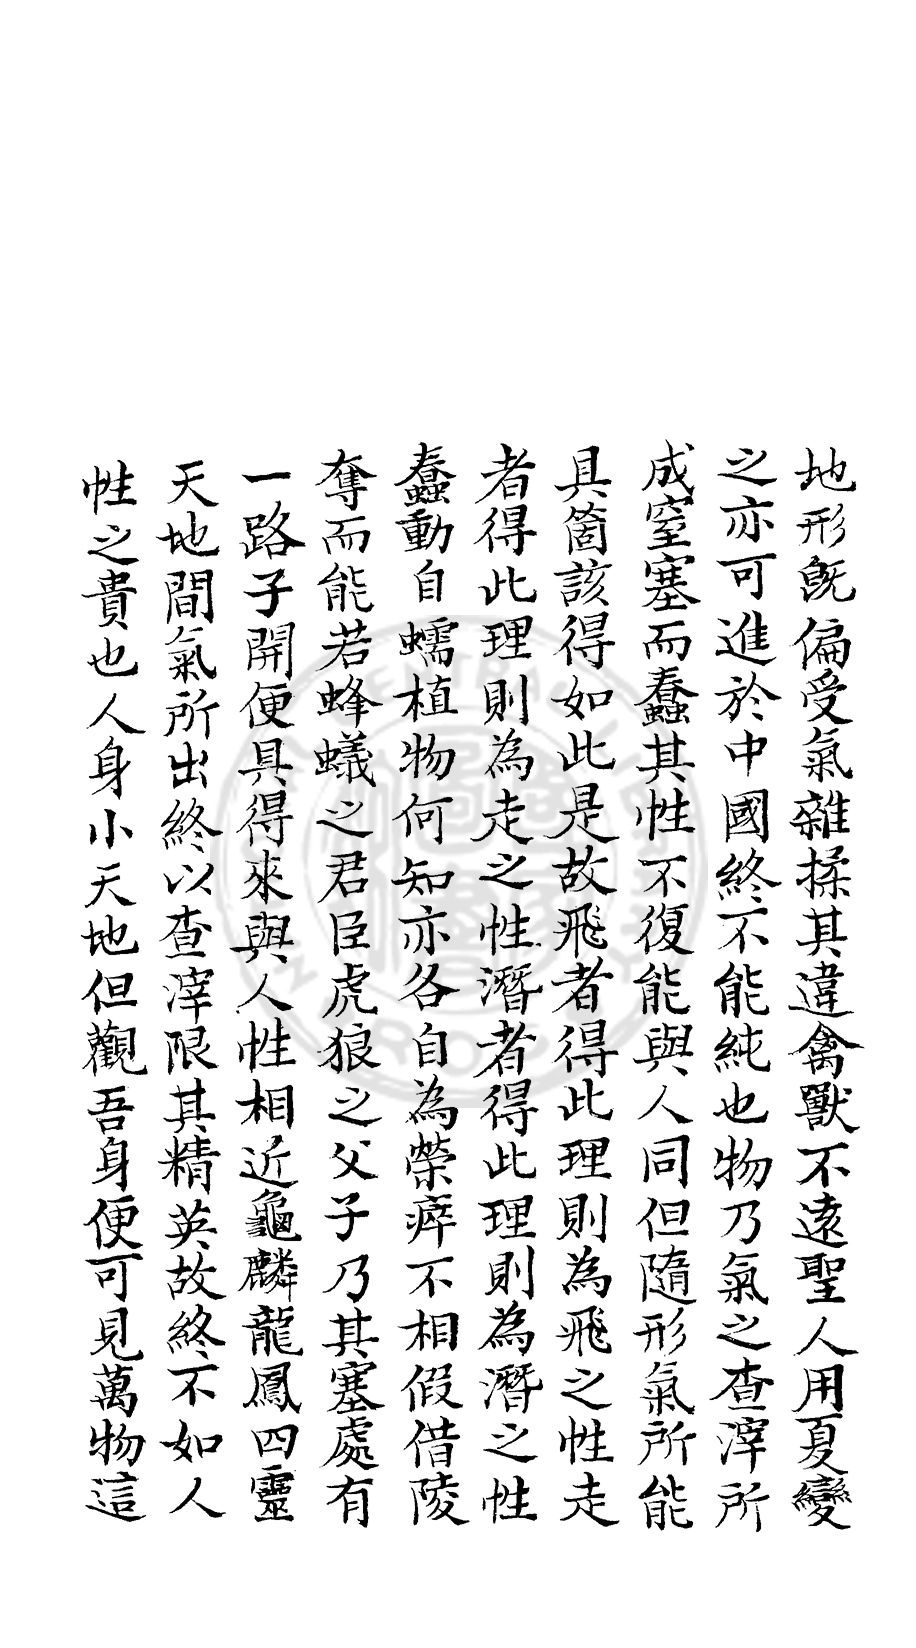 地形旣偏受氣雜揉其違禽獸不遠聖人用夏變
之亦可進於中國終不能純也物乃氣之查滓所
成窒塞而蠢其性不復能與人同但隨形氣所能
具箇該得如此是故飛者得此理則為飛之性走
者得此理則為走之性潛者得此理則為潛之性
蠢動自蠕植物何知亦各自為榮瘁不相假借陵
奪而能若蜂蟻之君臣虎狼之父子乃其塞處有
一路子開便具得來與人性相近龜麟龍鳳四靈
天地間氣所出終以查滓限其精英故終不如人
性之貴也人身小天地但觀吾身便可見萬物這